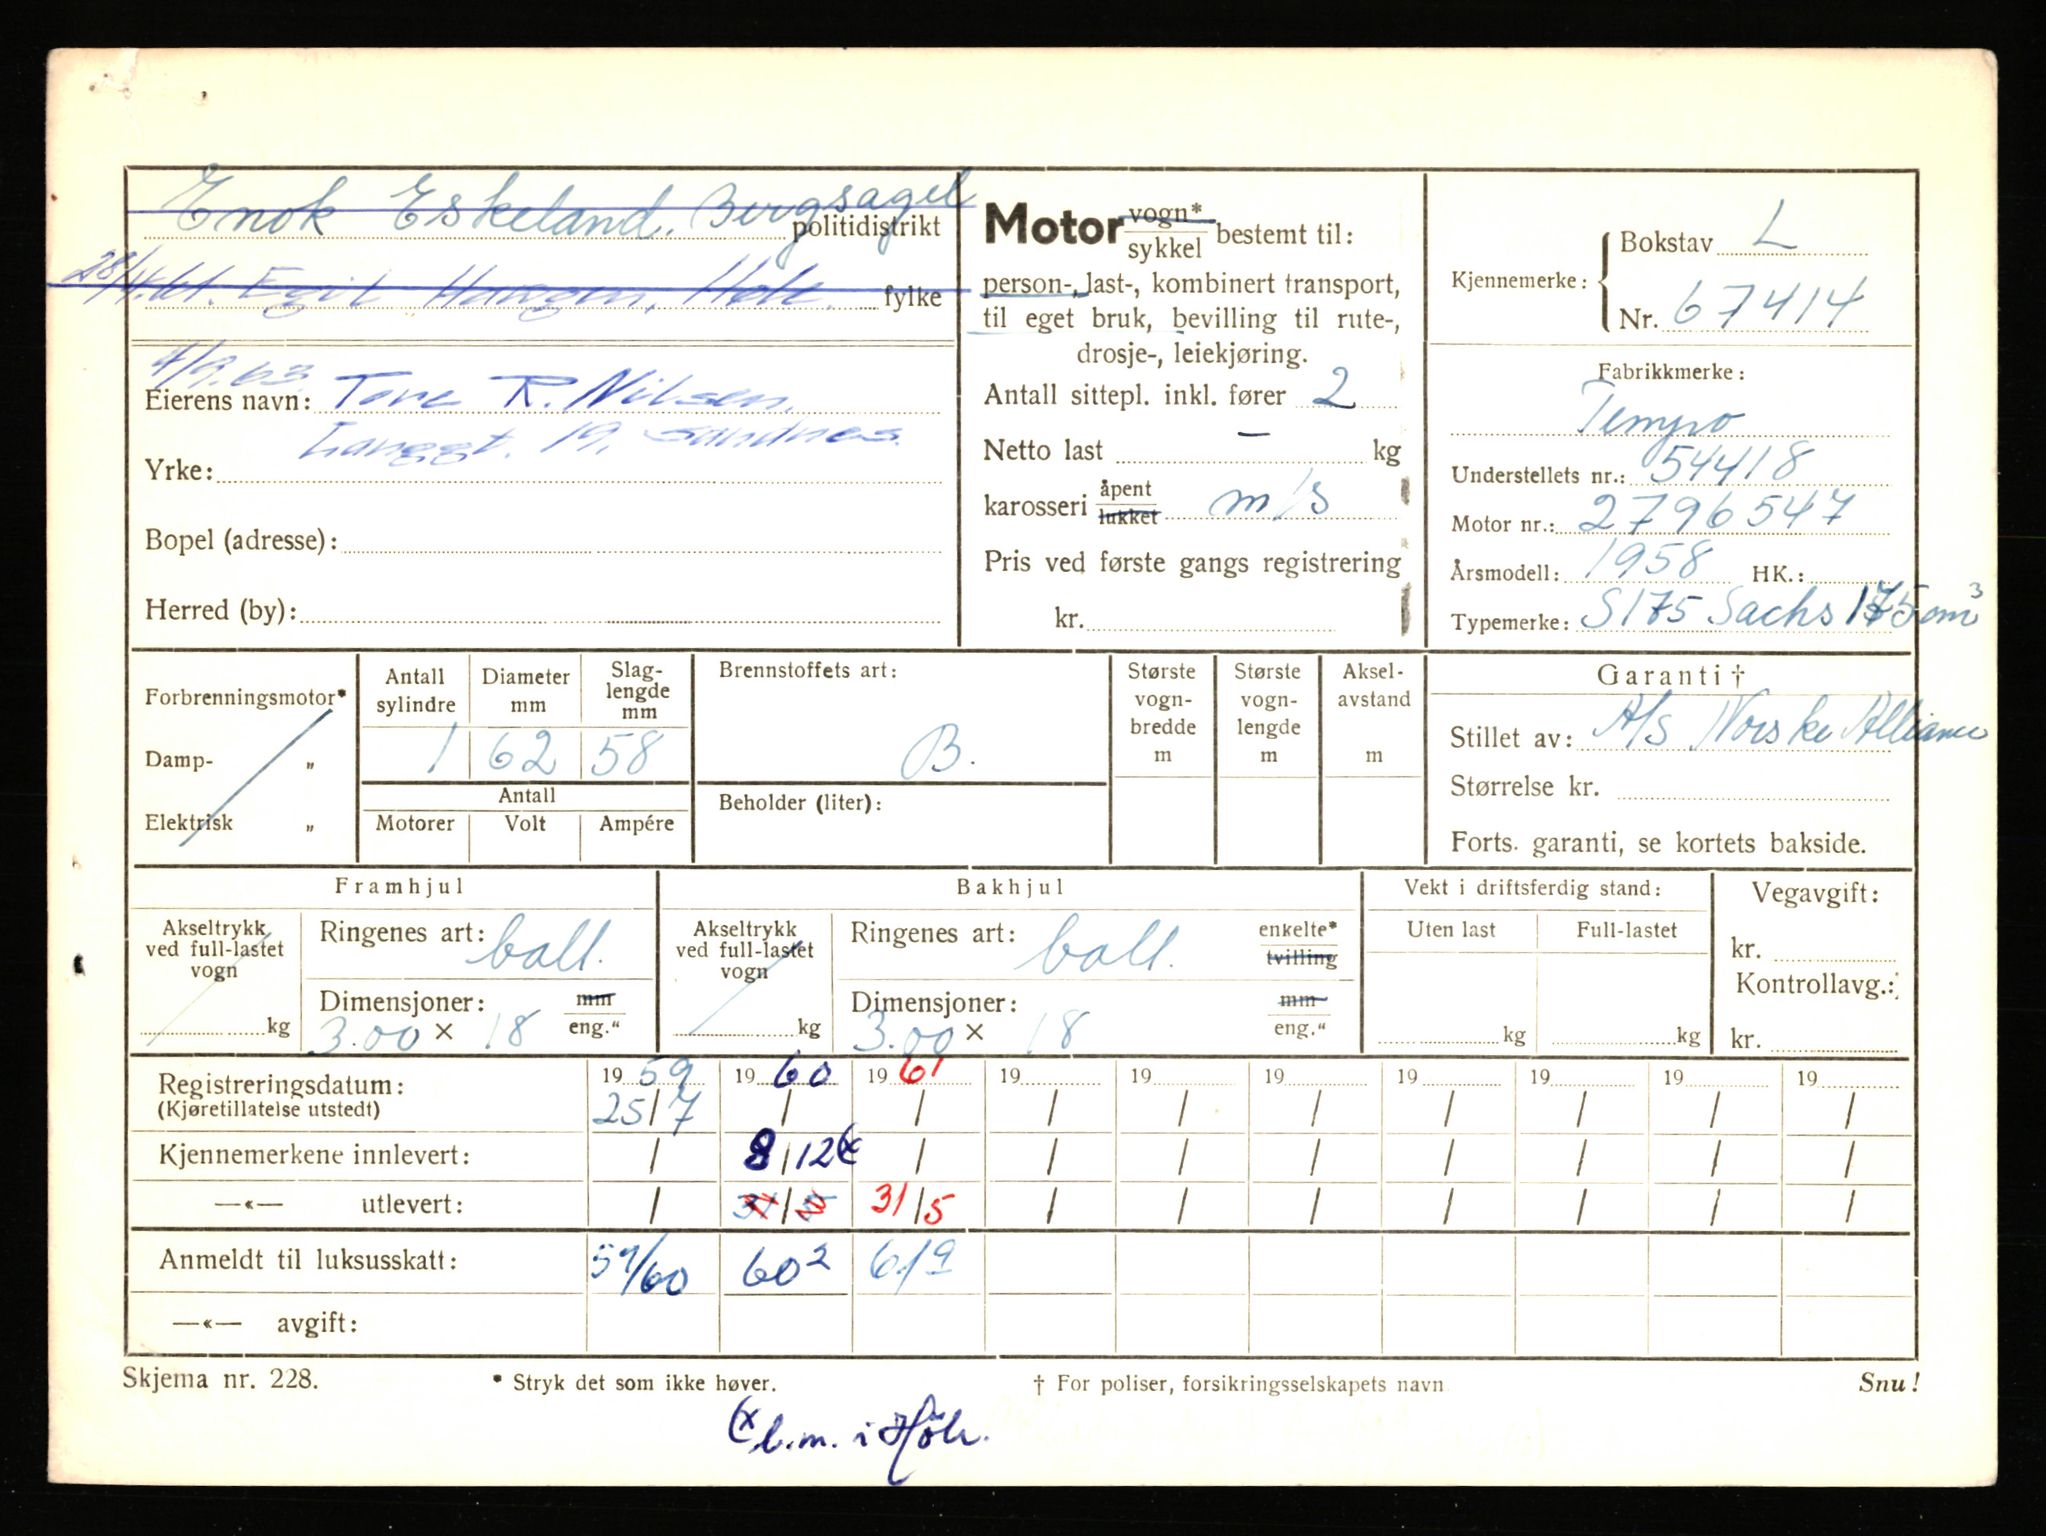 Enok Eskeland. Bergsagel politidistrikt
28/4.61. Egil Haugen, Høle. fylke
4/9.63.
Eierens navn: Tore R. Nilsen.
Langgt. 19, Sandnes.
Yrke:
Bopel (adresse):
Herred (by):
Motor vogn* sykkel bestemt til:
person-, last-, kombinert transport,
til eget bruk, bevilling til rute-,
drosje-, leiekjøring.
Antall sittepl. inkl. fører 2
Netto last – kg
karosseri åpent lukket m/s
Pris ved første gangs registrering
kr.
Kjennemerke: Bokstav L
Nr. 67414
Fabrikkmerke:
Tempo
Understellets nr.: 54418
Motor nr.: 2796547
Årsmodell: 1958 HK.:
Typemerke: S175 Sachs 175 cm³
Forbrenningsmotor*
Damp- „
Elektrisk „
Antall sylindre Diameter mm Slag-lengde mm
1 62 58
Antall
Motorer Volt Ampére
Brennstoffets art:
B.
Beholder (liter):
Største vogn-bredde m
Største vogn-lengde m
Aksel-avstand m
Garanti †
Stillet av: A/S Norske Alliance
Størrelse kr.
Forts. garanti, se kortets bakside.
Framhjul
Akseltrykk ved full-lastet vogn kg
Ringenes art: ball.
Dimensjoner: mm
3.00 × 18 eng."
Bakhjul
Akseltrykk ved full-lastet vogn kg
Ringenes art: ball. enkelte* tvilling
Dimensjoner: mm
3.00 × 18 eng."
Vekt i driftsferdig stand:
Uten last Full-lastet
kg kg
Vegavgift:
kr.
Kontrollavg.:
kr.
Registreringsdatum: 1959 1960 1961 19 19 19 19 19 19 19
(Kjøretillatelse utstedt) 25/7 / / / / / / / / /
Kjennemerkene innlevert: / 8/12 (x / / / / / / / /
—«— utlevert: / 31/5 31/5 / / / / / / /
Anmeldt til luksusskatt: 59/60 60² 61 9
—«— avgift:
Skjema nr. 228. * Stryk det som ikke høver. † For poliser, forsikringsselskapets navn Snu!
(x b.m. i Höle.